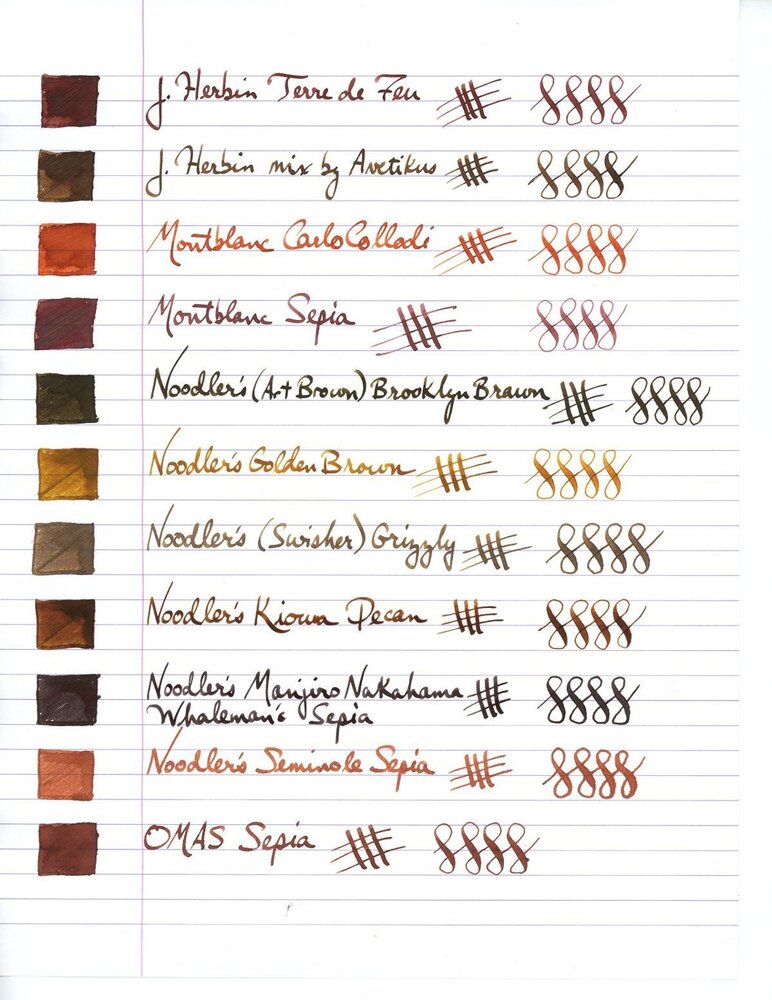 J. Herbin Terre de Feu
J. Herbin mix by Avetikus
Montblanc Carlo Collodi
Montblanc Sepia
Noodler's (Art Brown) Brooklyn Brown
Noodler's Golden Brown
Noodler's (Swisher) Grizzly
Noodler's Kiowa Pecan
Noodler's Manjiro Nakahama
Whaleman's Sepia
Noodler's Seminole Sepia
OMAS Sepia